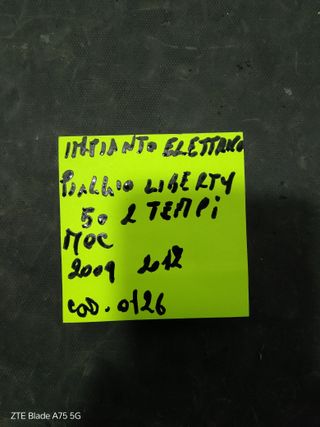 IMPIANTO ELETTRICO
PIAGGIO LIBERTY
50 2 TEMPi
MOC
2009 2012
COD. 0126
ZTE Blade A75 5G